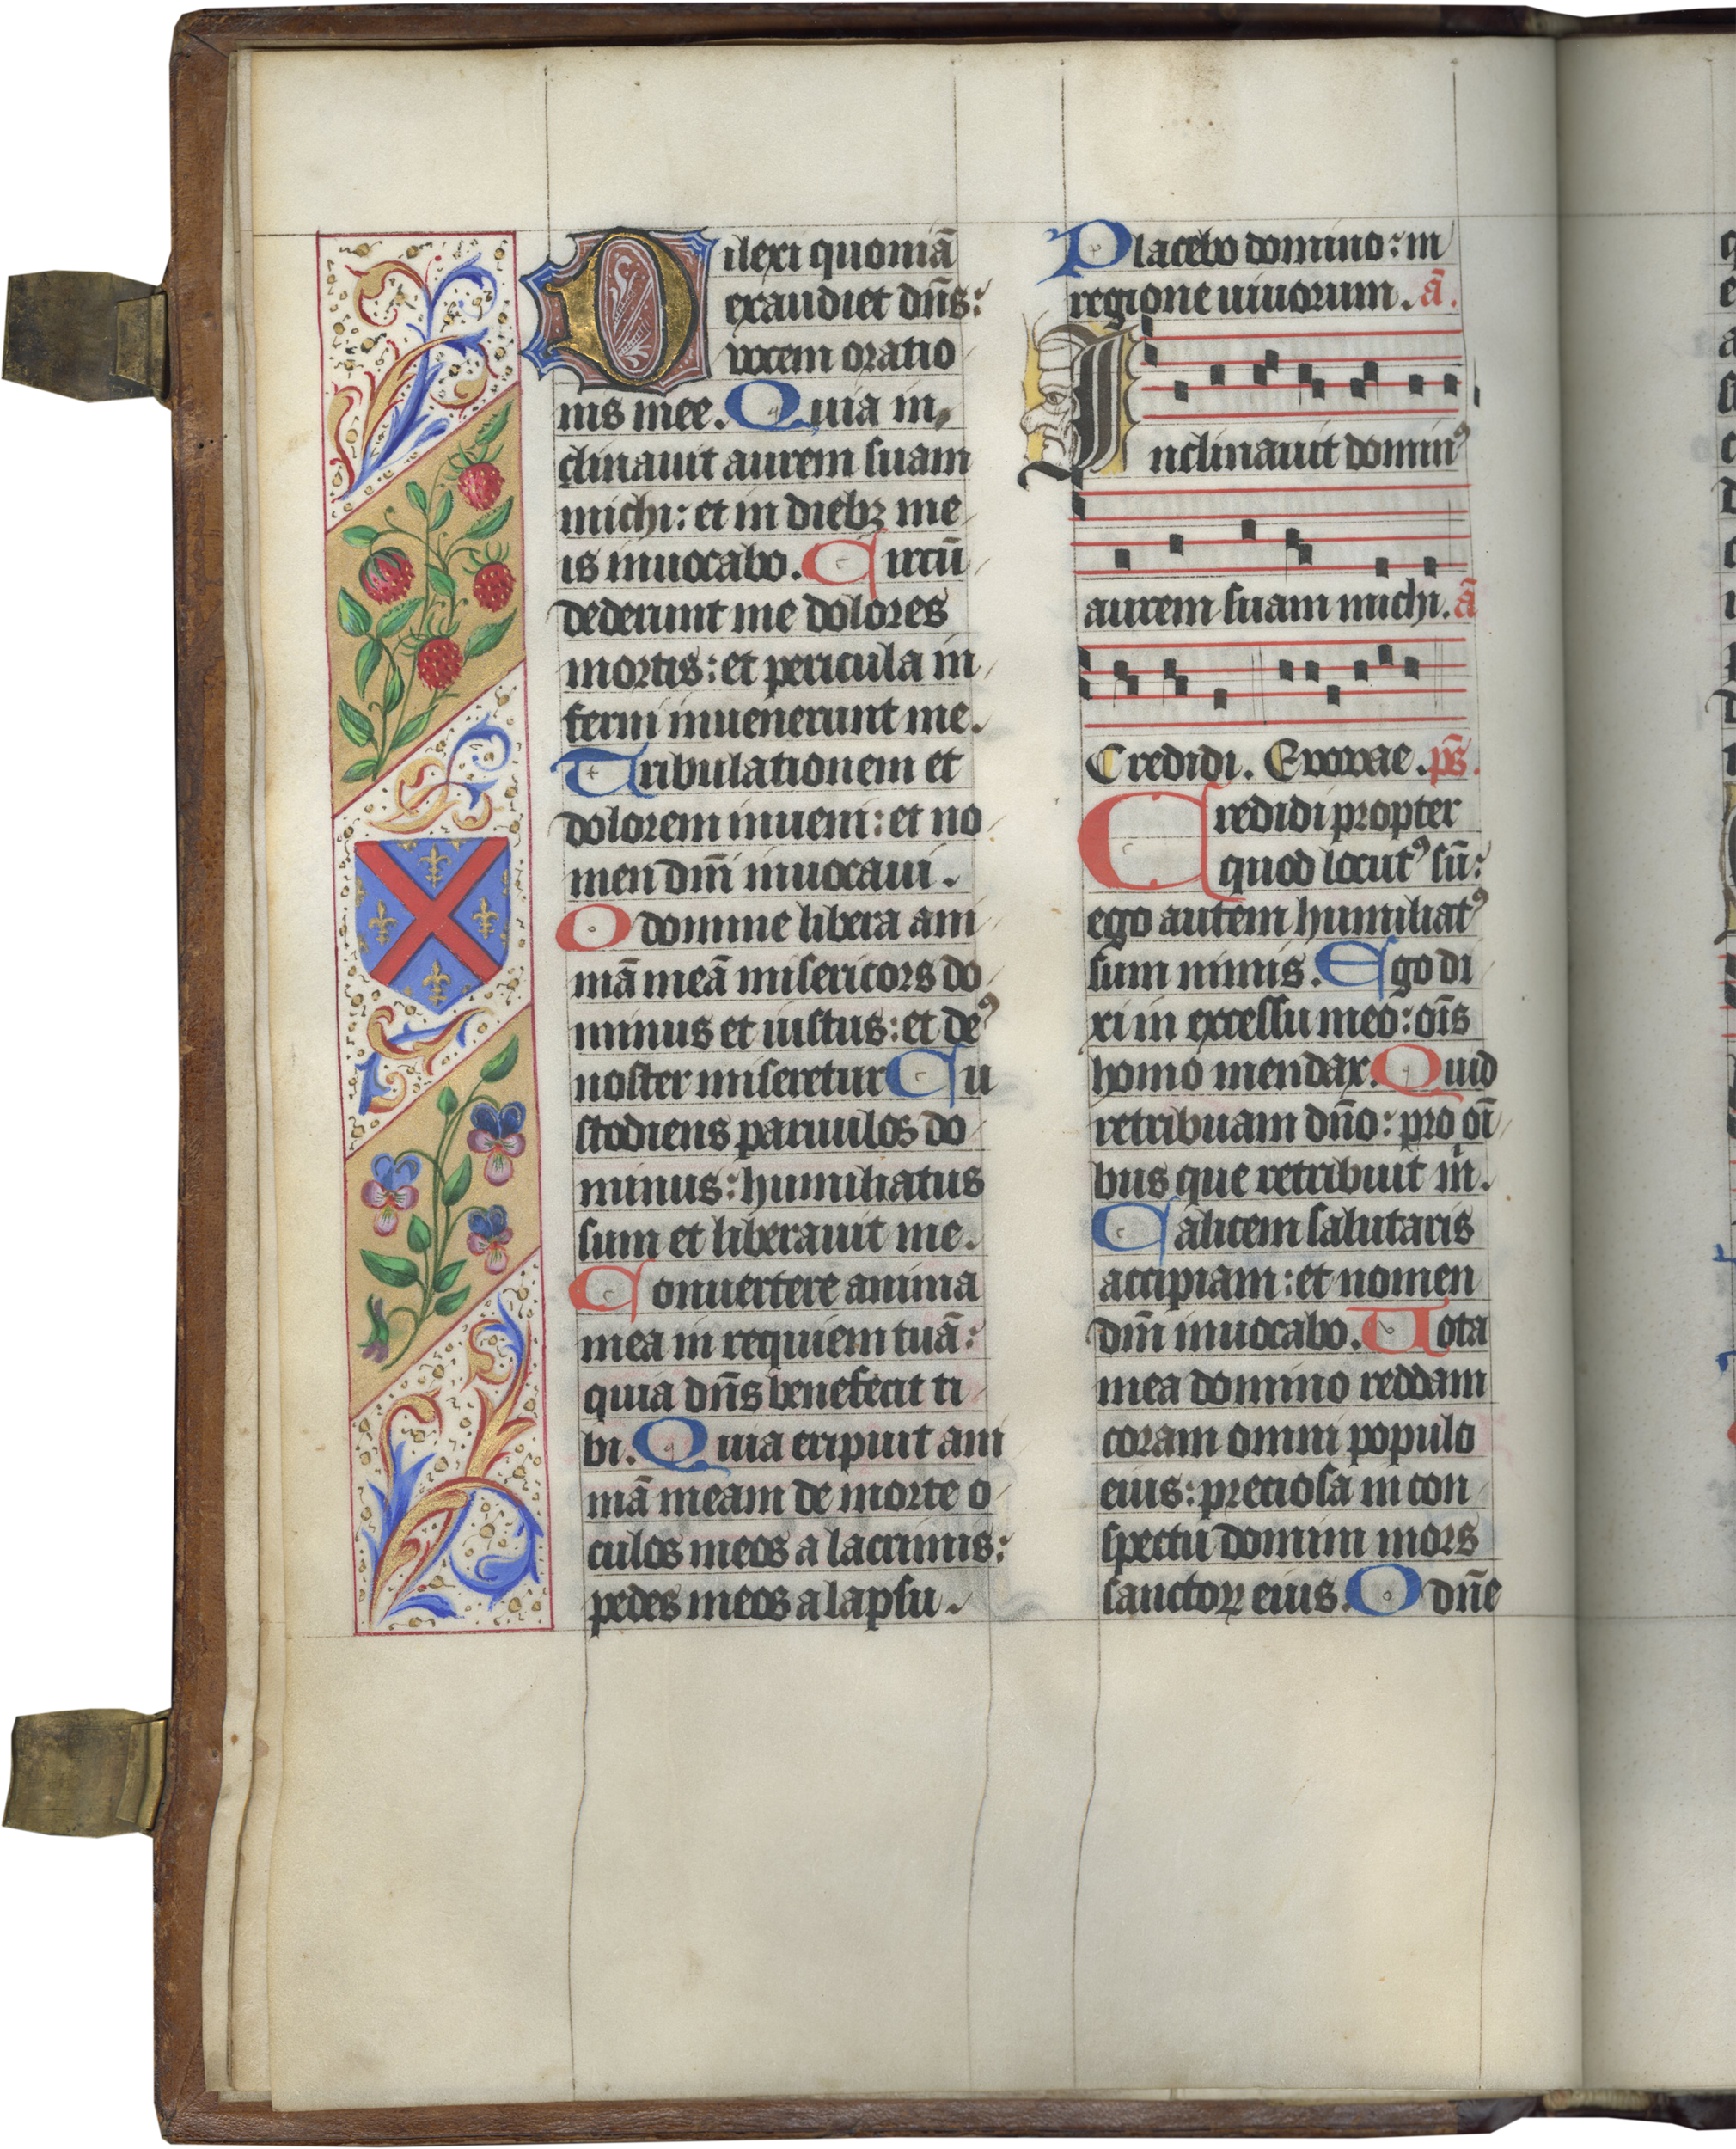 Dilexi quoniā
exaudiet dn̄s:
vocem oratio
nis mee. Quia in,
clinauit aurem suam
michi: et in diebꝫ me
is inuocabo. Circū
dederunt me dolores
mortis: et pericula in
ferni inuenerunt me.
Tribulationem et
dolorem inueni: et no
men dn̄i inuocaui.
O domine libera ani
mā meā misericors do
minus et iustus: et deꝰ
noster miseretur Cu
stodiens paruulos do
minus: humiliatus
sum et liberauit me.
Conuertere anima
mea in requiem tuā:
quia dn̄s benefecit ti
bi. Quia eripuit ani
mā meam de morte o
culos meos a lacrimis:
pedes meos a lapsu.
Placebo domino: in
regione uiuorum. ā.
Inclinauit dominꝰ
aurem suam michi. ā
Credidi. Evovae. ps̄.
Credidi propter
quod locutꝰ sū:
ego autem humiliatꝰ
sum nimis. Ego di
xi in excessu meo: oīs
homo mendax. Quid
retribuam dn̄o: pro oī
bus que retribuit m̄.
Calicem salutaris
accipiam: et nomen
dn̄i inuocabo. Uota
mea domino reddam
coram omni populo
eius: preciosa in con
spectu domini mors
sanctoꝝ eius. O dn̄e